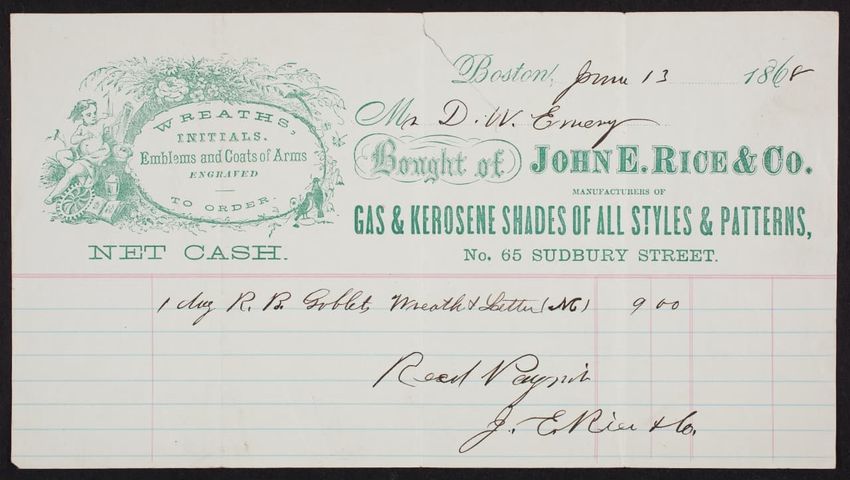 Boston, June 13 1868
Mr D. W. Emery
WREATHS,
INITIALS.
Emblems and Coats of Arms
ENGRAVED
TO ORDER.
NET CASH.
Bought of JOHN E. RICE & CO.
MANUFACTURERS OF
GAS & KEROSENE SHADES OF ALL STYLES & PATTERNS,
No. 65 SUDBURY STREET.
1 doz R. B. Goblets Wreath & Letter (M) 9 00
Recd Paymt
J. E. Rice & Co.